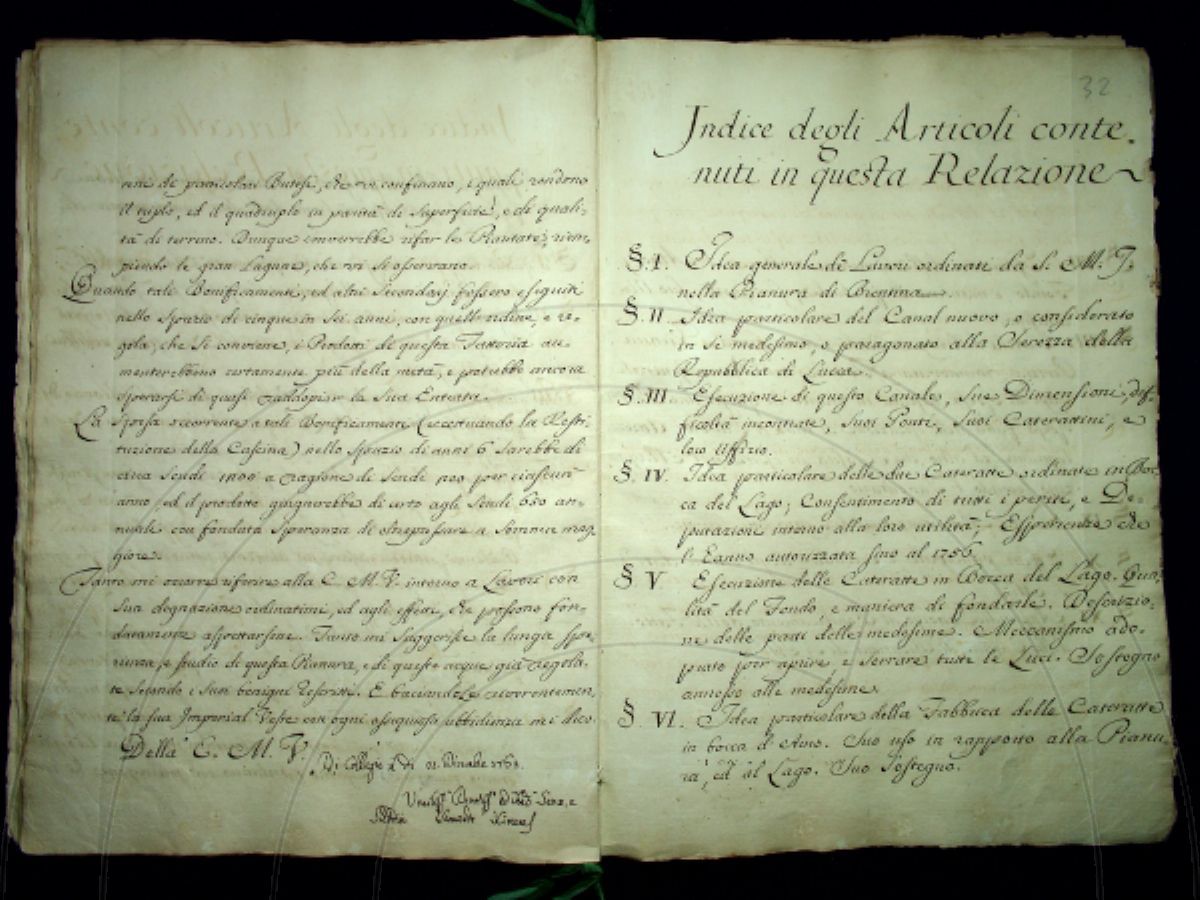 rini di particolari Butesi, che vi confinano, i quali rendono
il triplo, ed il quadruplo in parità di superficie, e di quali-
tà di terreno. Dunque converrebbe rifar le Piantate, riem-
piendo le gran Lagune, che vi si osservano.
Quando tali Bonificamenti, ed altri Secondarj fossero eseguiti
nello spazio di cinque in sei anni, con quell'ordine, e re-
gola, che si conviene, i Prodotti di questa Fattoria au-
menterebbono certamente più della metà, e potrebbe ancora
sperarsi di quasi raddopiar la Sua Entrata.
La Spesa occorrente a tali Bonificamenti (eccettuando la Resti-
tuzione della Cascina) nello spazio di anni 6 sarebbe di
circa Scudi a ragione di Scudi per ciascun
anno, ed il prodotto giugnerebbe di certo agli Scudi 650 an-
nuali con fondata Speranza di oltrepassare a Somma mag-
giore.
Tanto mi occorre riferire alla C. M. V. intorno a Lavori con
Sua degnazione ordinatimi, ed agli effetti, che possono fon-
datamente aspettarsene. Tanto mi suggerisce la lunga spe-
rienza, e studio di questa Pianura, e di queste acque già regola-
te secondo i Suoi benigni Rescritti. E baciandole reverentemen-
te la sua Imperial Veste con ogni ossequiosa ubbidienza mi dico
Della C. M. V.
Di
32
Indice degli Articoli conte-
nuti in questa Relazione
§. I. Idea generale de Lavori ordinati da S. M. I.
nella Pianura di Bientina.
§. II. Idea particolare del Canal nuovo, o considerato
in se medesimo, o paragonato alla Serezza della
Repubblica di Lucca.
§. III. Esecuzione di questo Canale, Sue Dimensioni, dif-
ficoltà incontrate, Suoi Ponti, Suoi Caterattini, e
loro Uffizio.
§. IV. Idea particolare delle due Cateratte ordinate in Boc-
ca del Lago; Consentimento di tutti i periti, e De-
putazioni intorno alla loro utilità; Esperienze che
l'hanno autorizzata sino al 1756.
§. V Esecuzione delle Cateratte in Bocca del Lago. Qua-
lità del Fondo, e maniera di fondarle. Descrizio-
ne delle parti delle medesime. Meccanismo ado-
prato per aprire e serrare tutte le Luci. Sostegno
annesso alle medesime.
§. VI. Idea particolare della Fabbrica delle Cateratte
in bocca d'Arno. Suo uso in rapporto alla Pianu-
ra, ed al Lago. Suo Sostegno.